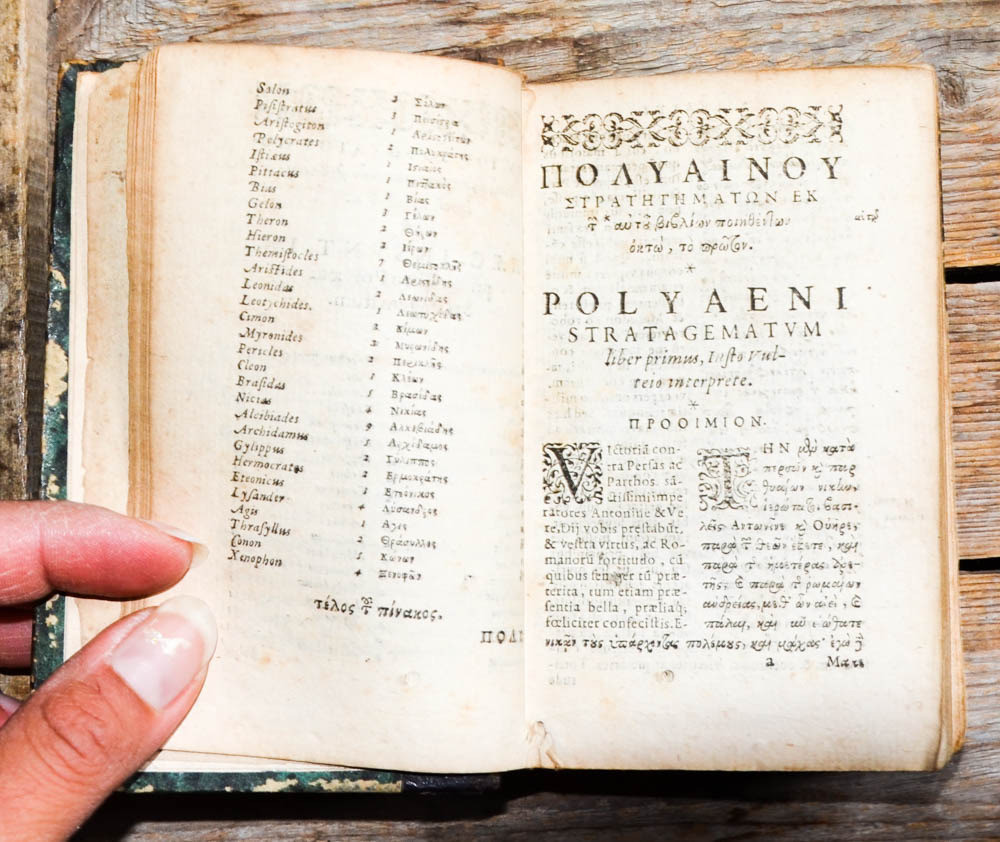 Salon 3 Σόλων
Pisistratus 3 Πεισίστρα
Aristogiton 1 Αριστογείτων
Polycrates 2 Πολυκράτης
Istiæus 1 Ισιαῖος
Pittacus 1 Πιττακὸς
Bias 1 Βίας
Gelon 3 Γέλων
Theron 2 Θήρων
Hieron 2 Ιέρων
Themistocles 7 Θεμιστοκλῆς
Aristides 1 Αριστείδης
Leonidas Λεωνίδας
Leotychides. 1 Λεωτυχίδας
Cimon 2 Κίμων
Myronides 3 Μυρωνίδης
Pericles 2 Περικλῆς
Cleon 1 Κλέων
Brasidas 5 Βρασίδας
Nicias 4 Νικίας
Alcibiades 9 Αλκιβιάδης
Archidamus 5 Αρχίδαμος
Gylippus 2 Γύλιππος
Hermocrates 2 Ερμοκράτης
Eteonicus 1 Ετεόνικος
Lysander Λύσανδρος
Agis Αγις
Thrasyllus 2 Θράσυλλος
Conon 5 Κόνων
Xenophon 4 Ξενοφῶν
τέλος τοῦ πίνακος.
ΠΟΛΥ
ΠΟΛΥΑΙΝΟΥ
ΣΤΡΑΤΗΓΗΜΑΤΩΝ ΕΚ
τ͂ κ αὐτοῦ βιβλίων ποιηθέντων αὐτῷ
ὀκτὼ, τὸ πρῶτον.
*
POLYAENI
STRATAGEMATVM
liber primus, Iusto Vul-
teio interprete.
*
ΠΡΟΟΙΜΙΟΝ.
VIctoriā con-
tra Persas ac
Parthos, sā-
ctissimi impe
ratores Antonine & Ve
re, Dij vobis præstabūt,
& vestra virtus, ac Ro-
manorū fortitudo, cū
quibus semper tū præ-
terita, tum etiam præ-
sentia bella, præliaq;
fœliciter confecistis. E-
ΤΗΝ μὲν κατὰ
περσῶν κ παρ
θυαίων νίκην,
ἱερώτατοι βασι-
λεῖς Αντωνῖνε κ Οὐῆρε,
παρὰ τ θεῶν ἕξετε, καὶ
παρὰ τ ἡμετέρας ἀρε-
τῆς, κ παρὰ τ ῥωμαίων
ἀνδρείας, μεθ' ὧν ἀεὶ, κ
πάλαι, καὶ νῦ εἰώθατε
νικᾶν τοὺς ὑπάρχοντας πολέμους, καὶ μάχας· ἐγὼ δ
a Μακε